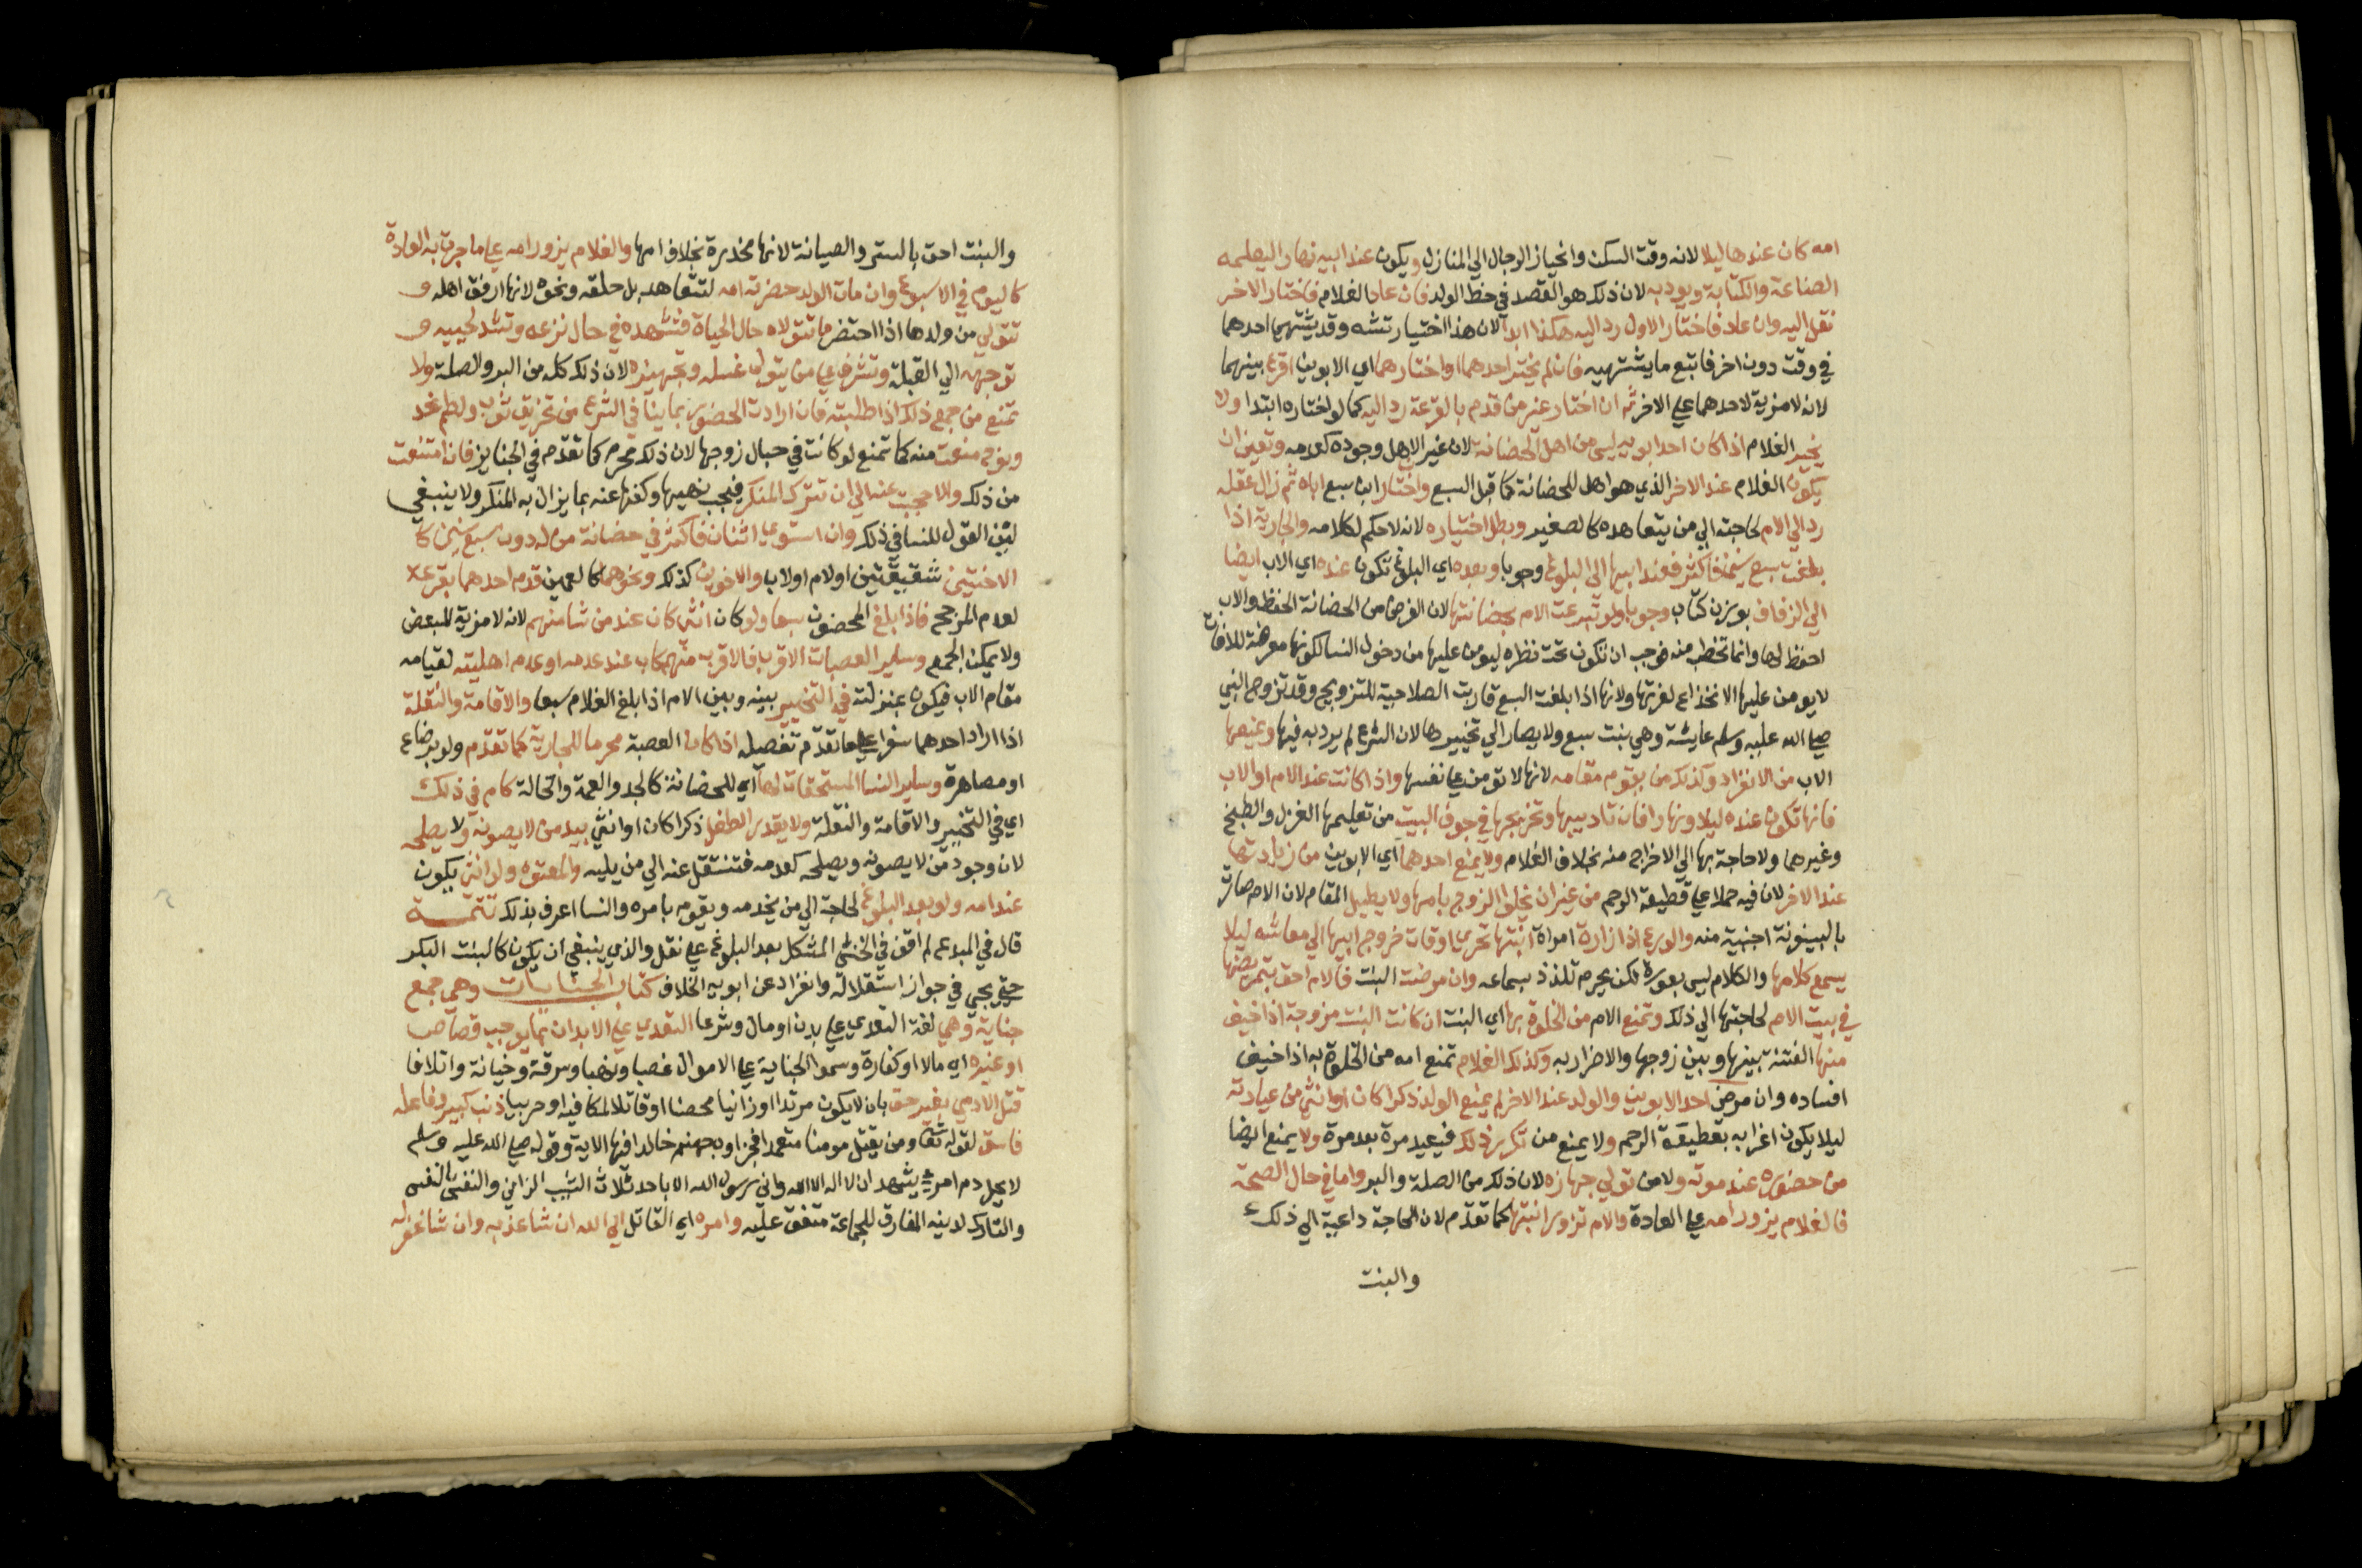 امه كان عندها ليلا لانه وقت السكن وانحياز الرجال الي المنازل ويكون عند ابيه نهارا ليعلمه
الصناعة والكتابة ويودبه لان ذلك هو القصد في حظ الولد فان عاد الغلام فاختار الاخر
نقل اليه وان عاد فاختار الاول رد اليه هكذا ابدا لان هذا اختيار تشه وقد يشتهي احدهما
في وقت دون اخر فاتبع ما يشتهيه فان لم يختر احدهما او اختارهما اي الابوين اقرع بينهما
لانه لا مزية لاحدهما علي الاخر ثم ان اختار غير من قدم بالقرعة رد اليه كما لو اختاره ابتدا ولا
يخير الغلام اذا كان احد ابويه ليس من اهل الحضانة لان غير الاهل وجوده كعدمه وتعين ان
يكون الغلام عند الاخر الذي هو اهل للحضانة كما قبل السبع واختار ابن سبع اباه ثم زال عقله
رد الي الام لحاجته الي من يتعاهده كالصغير وبطل اختياره لانه لا حكم لكلامه والجارية اذا
بلغت سبع سنين فاكثر فعند ابيها الي البلوغ وجوبا وبعده اي البلوغ تكون عنده اي الاب ايضا
الي الزفاف بوزن كتاب وجوبا ولو تبرعت الام بحضانتها لان الغرض من الحضانة الحفظ والاب
احفظ لها وانما تخطب منه فوجب ان تكون تحت نظره ليومن عليها من دخول النسا لكونها معرضة للافات
لا يومن عليها الانخداع لغرتها ولانها اذا بلغت السبع قاربت الصلاحية للتزويج وقد تزوج النبي
صلي الله عليه وسلم عايشة وهي بنت سبع ولا يصار الي تخييرها لان الشرع لم يرد به فيها ويمنعها
الاب من الانفراد وكذلك من يقوم مقامه لانها لا تومن علي نفسها واذا كانت عند الام او الاب
فانها تكون عنده ليلا ونهارا فان تاديبها وتخريجها في جوف البيت من تعليمها الغزل والطبخ
وغيرهما ولا حاجة بها الي الاخراج منه بخلاف الغلام ولا يمنع احدهما اي الابوين من زيارتها
عند الاخر لان فيه حملا علي قطيعة الرحم من غير ان يخلو الزوج بامها ولا يطيل المقام لان الام صارت
بالبينونة اجنبية منه والورع اذا زارت امراة ابنتها تحري اوقات خروج ابيها الي معاشه ليلا
يسمع كلامها والكلام ليس بعورة لكن يحرم تلذذ بسماعه وان مرضت البنت فالام احق بتمريضها
في بيت الام لحاجتها الي ذلك وتمنع الام من الخلوة بها اي البنت ان كانت البنت مزوجة اذا خيف
منها الفتنة بينها وبين زوجها والاضرار به وكذلك الغلام تمنع امه من الخلوة به اذا خيف
افساده وان مرض احد الابوين والولد عند الاخر لم يمنع الولد ذكرا كان او انثي من عيادته
ليلا يكون اغرا به بقطيعة الرحم ولا يمنع من تكرر ذلك فيعيد مرة بعد مرة ولا يمنع ايضا
من حضوره عند موته ولا من تولي جهازه لان ذلك من الصلة والبر واما في حال الصحة
فالغلام يزور امه علي العادة والام تزور ابنتها كما تقدم لان الحاجة داعية الي ذلك
والبنت
والبنت احق بالستر والصيانة لانها مخدرة بخلاف امها والغلام يزور امه علي ما جرت به العادة
كاليوم في الاسبوع وان مات الولد حضرته امه لتتعاهد بل حلقه ونحوه لانها ارفق اهله و
تتولي من ولدها اذا احتضر ما تتولاه حال الحياة فتشهده في حال نزعه وتشد لحييه و
توجهه الي القبلة وتشرف علي من يتولي غسله وتجهيزه لان ذلك كله من البر والصلة ولا
تمنع من جميع ذلك اذا طلبته فان ارادت الحضور بما ينافي الشرع من تخريق ثوب ولطم خد
ونوح منعت منه كما تمنع لو كانت في حبال زوجها لان ذلك محرم كما تقدم في الجنايز فان امتنعت
من ذلك والا حجبت عنه الي ان تترك المنكر فيجب نهيها وكفها عنه بما يزال به المنكر ولا ينبغي
لين القول للنسا في ذلك وان استوي اثنان فاكثر في حضانة من له دون سبع سنين كا
الاختين شقيقتين او لام او لاب والاخوين كذلك ونحوهما كالعمين قدم احدهما بقرعة
لعدم المرجح فاذا بلغ المحضون سبعا ولو كان انثي كان عند من شا منهم لانه لا مزية للبعض
ولا يمكن الجمع وساير العصبات الاقرب فالاقرب منهم كاب عند عدمه او عدم اهليته لقيامه
مقام الاب فيكون بمنزلته في التخيير بينه وبين الام اذا بلغ الغلام سبعا والاقامة والنقلة
اذا اراد احدهما سفرا علي ما تقدم تفصيله اذا كان العصبة محرما للجارية كما تقدم ولو برضاع
او مصاهرة وساير النسا المستحقات لها اي للحضانة كالجد والعمة والخالة كام في ذلك
اي في التخيير والاقامة والنقلة ولا يقر الطفل ذكرا كان او انثي بيد من لا يصونه ولا يصلحه
لان وجود من لا يصونه ويصلحه كعدمه فتنتقل عنه الي من يليه والمعتوه ولو انثي يكون
عند امه ولو بعد البلوغ لحاجته الي من يخدمه ويقوم بامره والنسا اعرف بذلك تتمة
قال في المبدع لم اقف في الخنثي المشكل بعد البلوغ علي نقل والذي ينبغي ان يكون كالبنت البكر
حتي يجي في جواز استقلاله وانفراد عن ابويه الخلاف كتاب الجنايات وهي جمع
جناية وهي لغة التعدي علي بدن او مال وشرعا التعدي علي الابدان بما يوجب قصاصا
او غيره اي مالا او كفارة وسموا الجناية علي الاموال غصبا ونهبا وسرقة وخيانة واتلافا
قتل الادمي بغير حق بان لا يكون مرتدا او زانيا محصنا او قاتلا لمكافيه او حربيا ذنب كبير وفاعله
فاسق لقوله تعا ومن يقتل مومنا متعمدا فجزاوه جهنم خالدا فيها الاية وقوله صلي الله عليه وسلم
لا يحل دم امري يشهد ان لا اله الا الله واني رسول الله الا باحد ثلاث الثيب الزاني والنفس بالنفس
والتارك لدينه المفارق للجماعة متفق عليه وامره اي القاتل الي الله ان شا عذبه وان شا غفر له